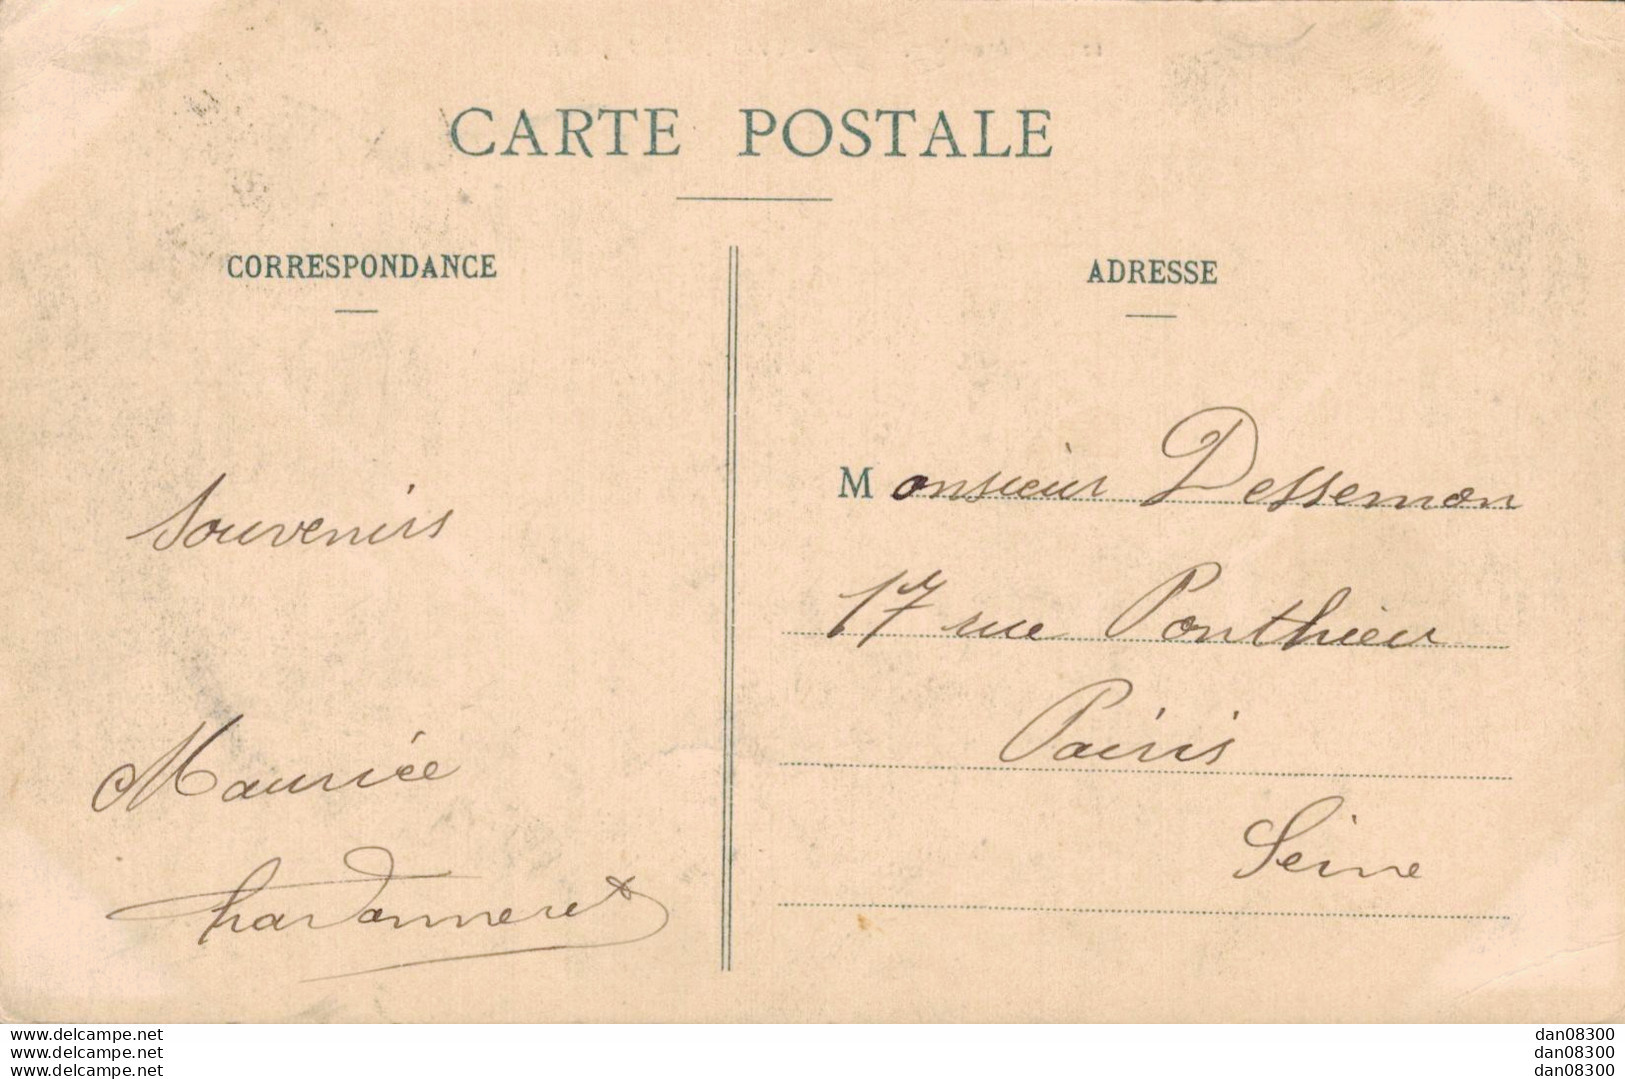 CARTE POSTALE
CORRESPONDANCE
Souvenirs
Maurice
Chardonneret
ADRESSE
Monsieur Dessemon
17 rue Ponthieu
Paris
Seine
www.delcampe.net
www.delcampe.net
www.delcampe.net
dan08300
dan08300
dan08300